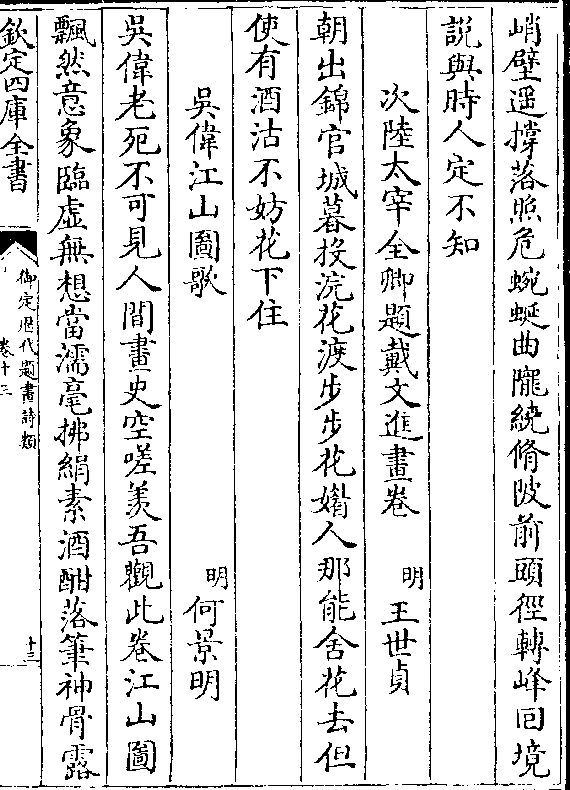 峭壁遥撑落照危蜿蜒曲隴繞脩陂前頭徑轉峰回境
説與時人定不知
次陸太宰全卿題戴文進畫卷 明 王世貞
朝出錦官城暮投浣花渡步步花㜮人那能舍花去但
使有酒沽不妨花下住
吳偉江山圖歌 明 何景明
吳偉老死不可見人間畫史空嗟羨吾觀此卷江山圖
飄然意象臨虛無想當濡毫拂絹素酒酣落筆神骨露
欽定四庫全書
御定歴代題畫詩類
卷十三
十三